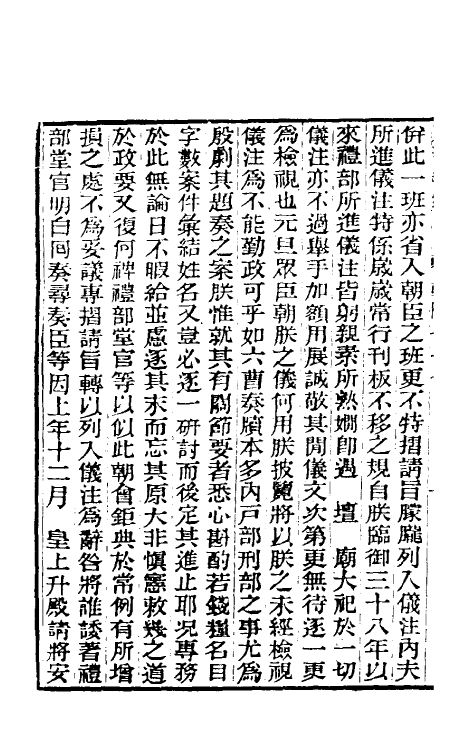 併此一班亦省入朝臣之班更不特摺請旨朦朧列入儀注內夫
所進儀注特係歲歲常行刊板不移之規自朕臨御三十八年以
來禮部所進儀注皆躬親素所熟嫺卽遇 壇 廟大祀於一切
儀注亦不過舉手加額用展誠敬其閒儀文次第更無待逐一更
爲檢視也元旦眾臣朝朕之儀何用朕披覽將以朕之未經檢視
儀注爲不能勤政可乎如六曹奏牘本多內戸部刑部之事尤爲
殷劇其題奏之案朕惟就其有關節要者悉心斟酌若錢糧名目
字數案件彙結姓名又豈必逐一研討而後定其進止耶况專務
於此無論日不暇給並慮逐其末而忘其原大非愼憲敕幾之道
於政要又復何裨禮部堂官等以似此朝會鉅典於常例有所增
損之處不爲妥議專摺請旨轉以列入儀注爲辭咎將誰諉著禮
部堂官明白囘奏尋奏臣等因上年十二月 皇上升殿請將安